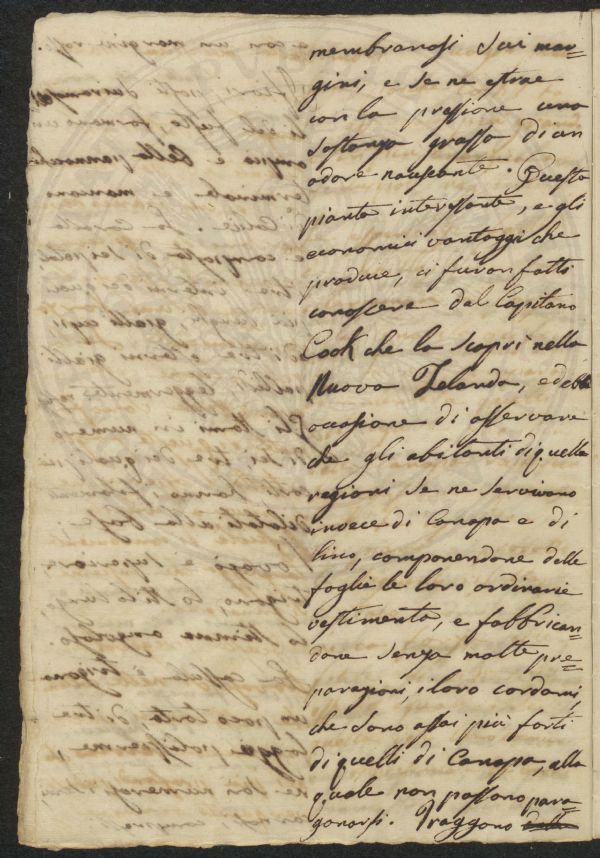 membranosi sui mar=
gini, e se ne estrae
con la pressione una
sostanza grassa di un
odore nauseante. Questa
pianta interessante, e gli
economici vantaggi che
produce, ci furon fatti
conoscere dal Capitano
Cook che la scoprì nella
Nuova Zelanda, ed ebbe
occasione di osservare
che gli abitanti di quelle
regioni se ne servivano
invece di Canapa e di
lino, componendone dalle
foglie le loro ordinarie
vestimenta, e fabbrican=
done senza molte pre=
parazioni, i loro cordami,
che sono assai più forti
di quelli di Canapa, alla
quale non possono para=
gonarsi. Traggono